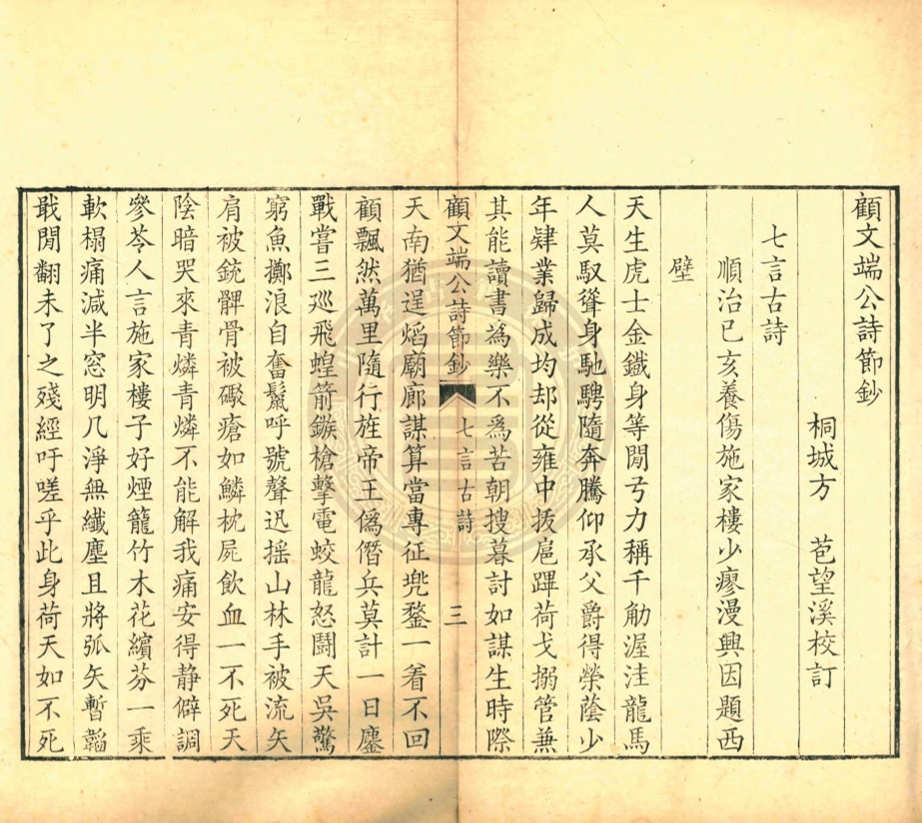 顧文端公詩節鈔
桐城方　苞望溪校訂
七言古詩
順治己亥養傷施家樓少瘳漫興因題西
壁
天生虎士金鐵身等閒弓力稱千觔渥洼龍馬
人莫馭聳身馳騁隨奔騰仰承父爵得榮蔭少
年肄業歸成均却從雍中扳扈蹕荷戈搦管兼
其能讀書為樂不為苦朝搜暮討如謀生時際
顧文端公詩節鈔　七言古詩　三
天南猶逞熖廟廊謀算當專征兠鍪一着不回
顧飄然萬里隨行旌帝王僞僭兵莫計一日鏖
戰嘗三巡飛蝗箭鏃槍擊電蛟龍怒鬪天吳驚
窮魚擲浪自奮鬣呼號聲迅摇山林手被流矢
肩被銃髀骨被礮瘡如鱗枕屍飲血一不死天
陰暗哭來青燐青燐不能解我痛安得静僻調
參苓人言施家樓子好煙籠竹木花繽芬一乘
軟榻痛減半窓明几淨無纖塵且將弧矢暫韜
戢閒翻未了之殘經吁嗟乎此身荷天如不死